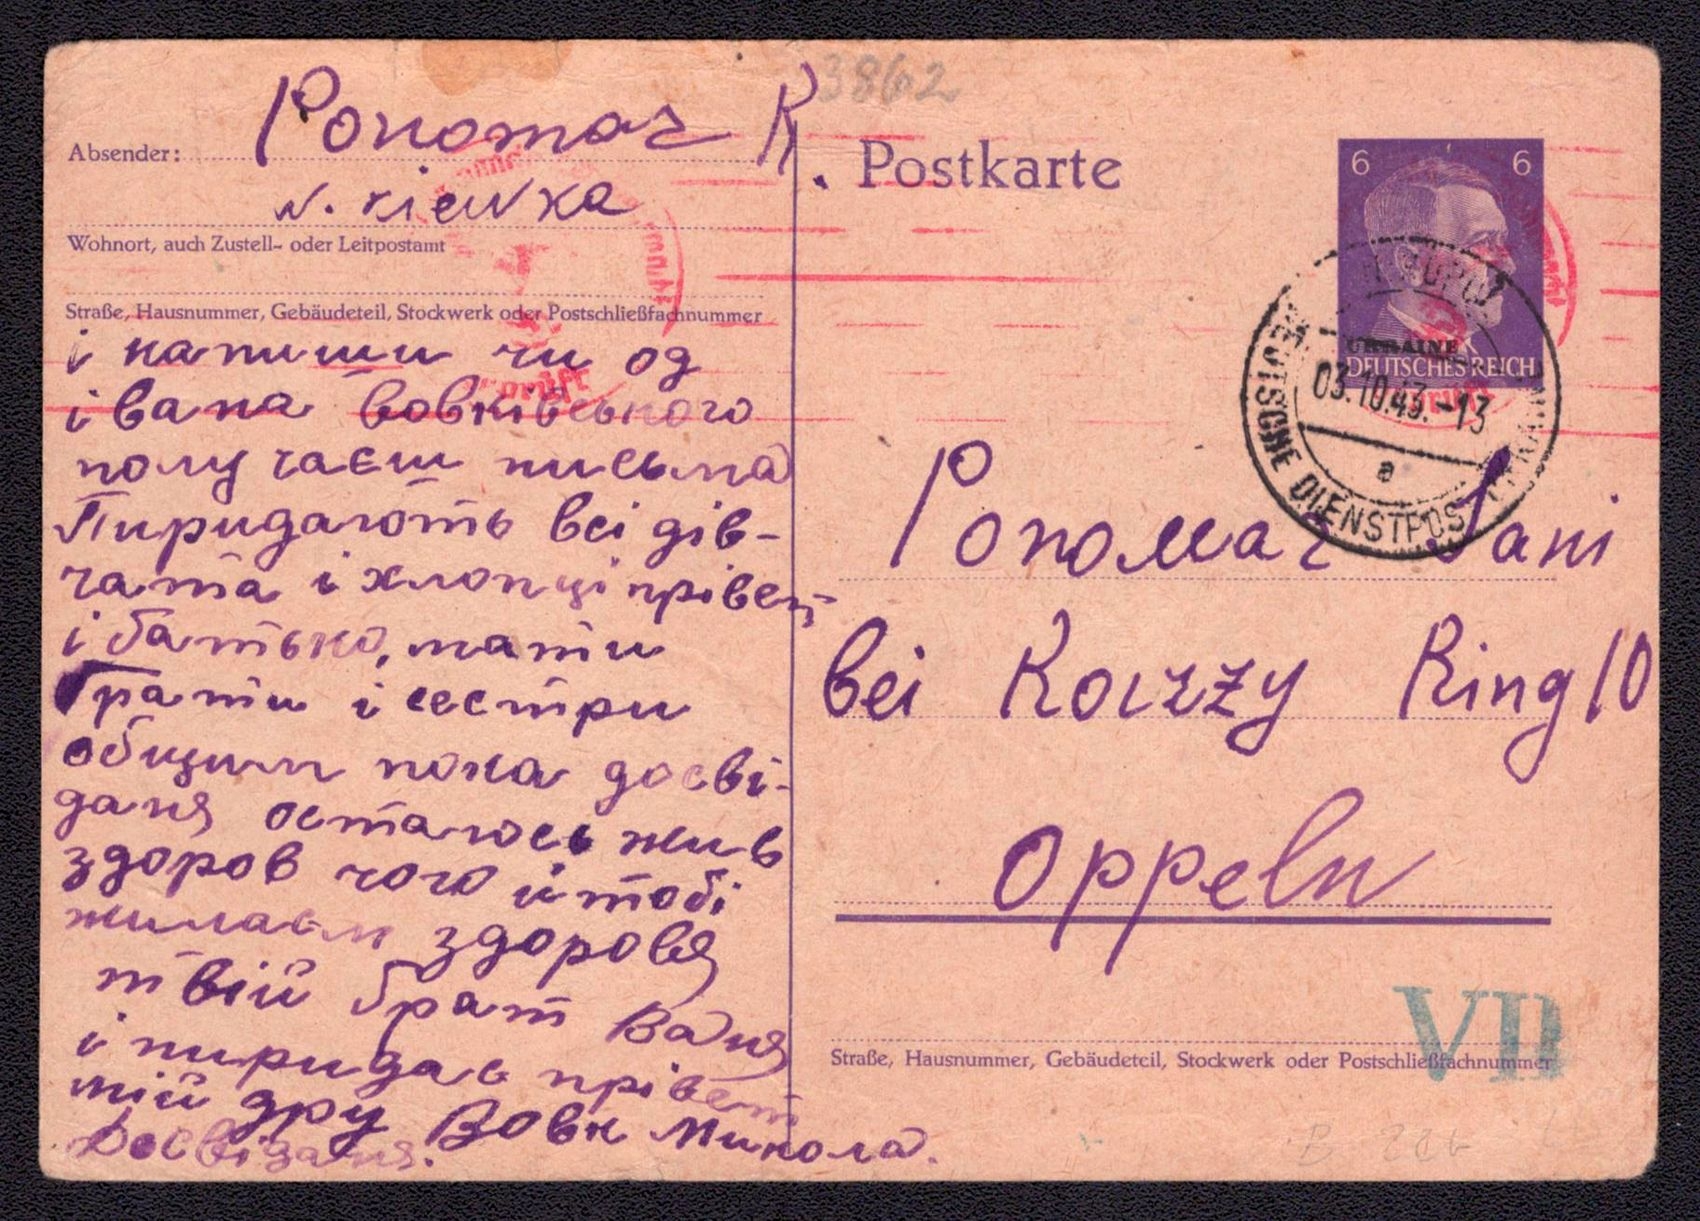 3862
Ponomar K.
Absender:
Wohnort, auch Zustell- oder Leitpostamt
Straße, Hausnummer, Gebäudeteil, Stockwerk oder Postschließfachnummer
і напиши чи од
івана вовківського
получаєш письма
Пиридають всі дів-
чата і хлопці прівет
і батько, мати
брати і сестри
общим пока досві-
даня остаюсь жив
здоров чого й тобі
жилаєм здоровя
твій брат Ваня
і пиридав прівет
мій дру Вовк Микола.
Досвіданя.
Postkarte
6 6
UKRAINE
DEUTSCHES REICH
DEUTSCHE DIENSTPOST UKRAINE
03.10.43.-13
a
Ponomar Sani
bei Korzzy Ring 10
Oppeln
VB
Straße, Hausnummer, Gebäudeteil, Stockwerk oder Postschließfachnummer